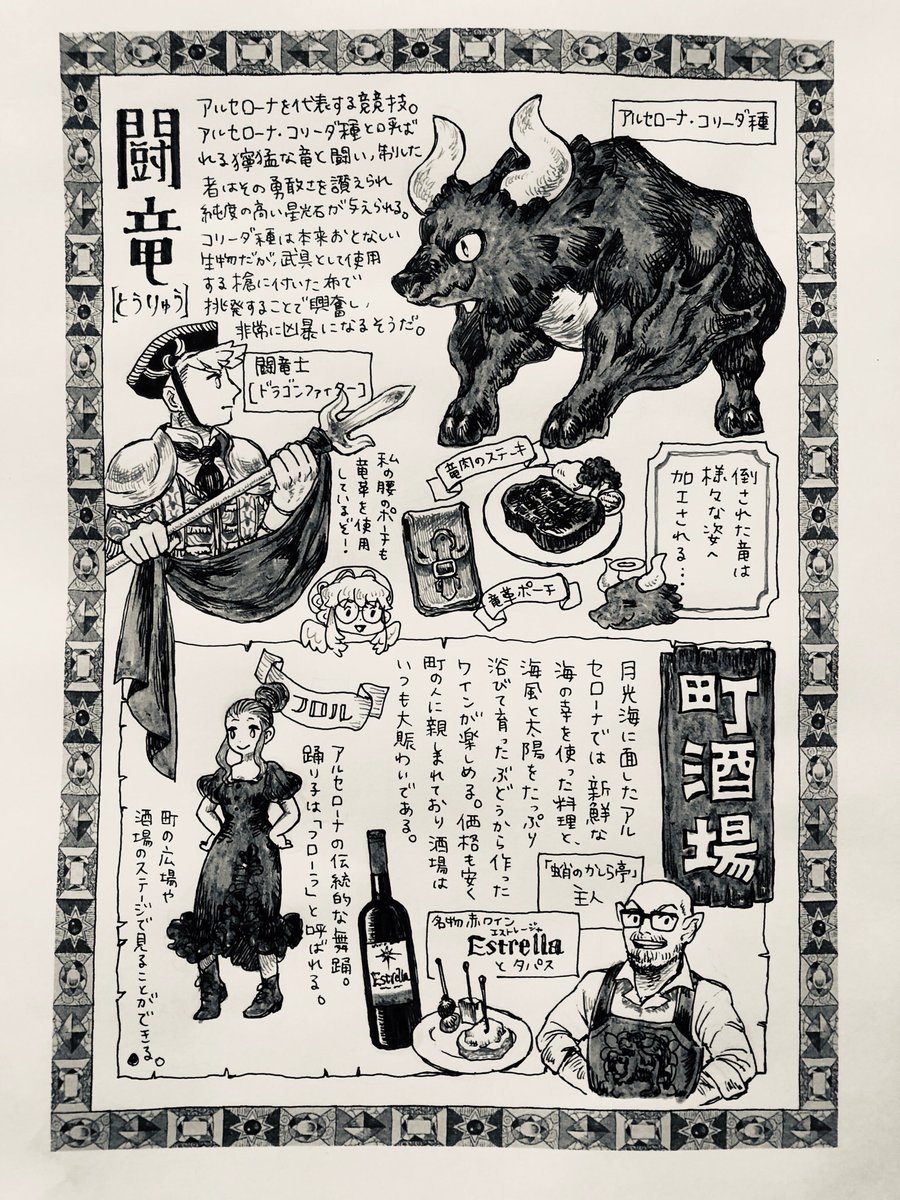 闘竜
[とうりゅう]
アルセローナを代表する競技。
アルセローナ・コリーダ種と呼ば
れる獰猛な竜と闘い、制した
者はその勇敢さを讃えられ
純度の高い星光石が与えられる。
コリーダ種は本来おとなしい
生物だが、武具として使用
する槍に付いた布で
挑発することで興奮し、
非常に凶暴になるそうだ。
アルセローナ・コリーダ種
闘竜士
[ドラゴンファイター]
私の腰のポーチも
竜革を使用
しているぞー!
竜肉のステーキ
竜革ポーチ
倒された竜は
様々な姿へ
加工される…
町酒場
月光海に面したアル
セローナでは、新鮮な
海の幸を使った料理と、
海風と太陽をたっぷり
浴びて育ったぶどうから作った
ワインが楽しめる。価格も安く
町の人に親しまれており酒場は
いつも大賑わいである。
フロル
アルセローナの伝統的な舞踊。
踊り子は「フローラ」と呼ばれる。
町の広場や
酒場のステージで見ることができる。
「蛸のかしら亭」
主人
名物赤ワイン
エストレージャ
Estrella
と タパス
Estrella